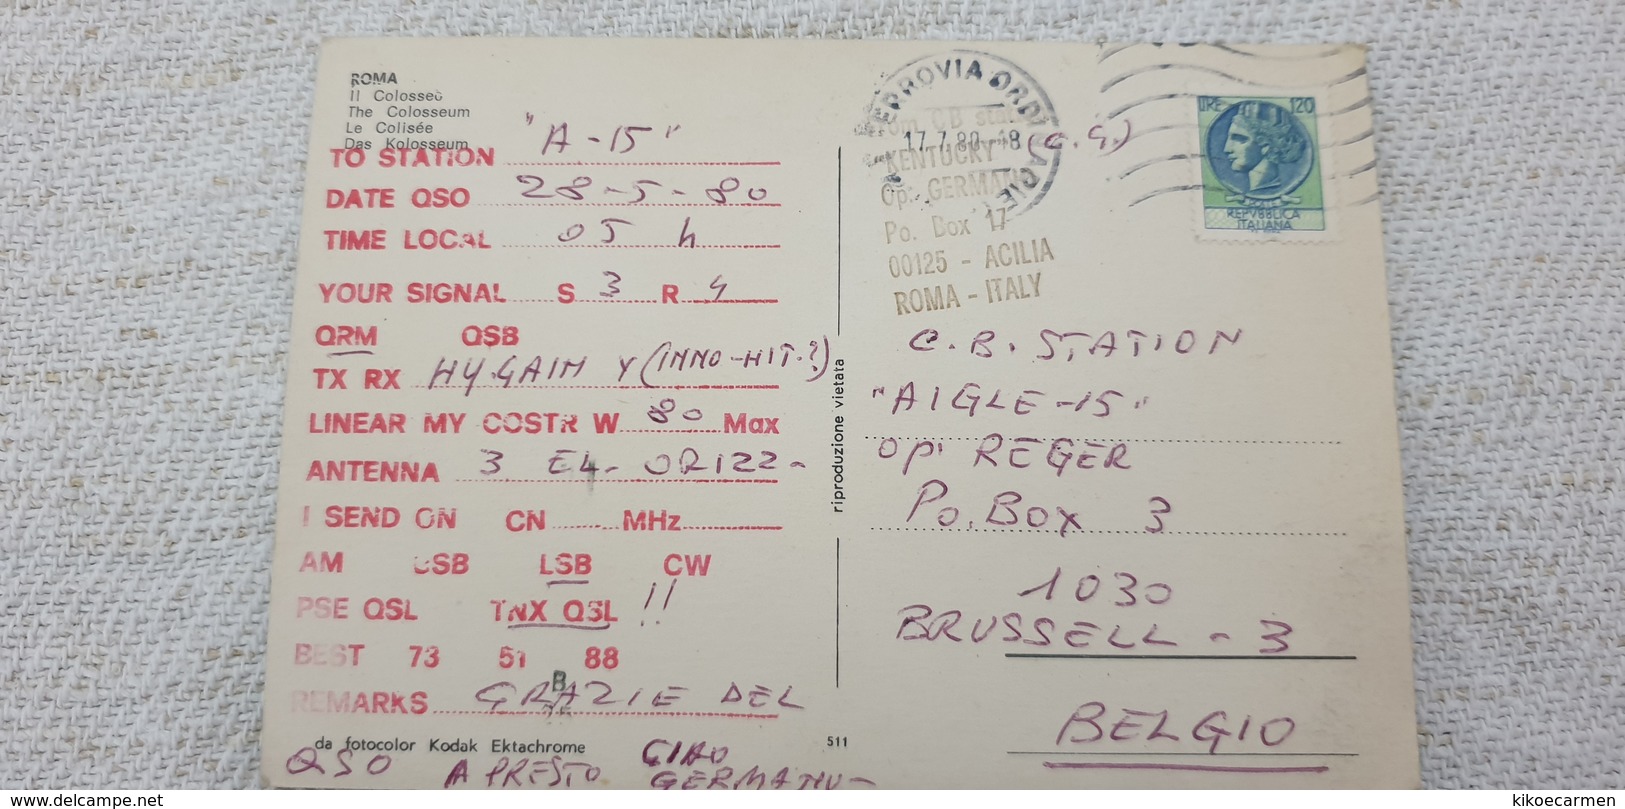 ROMA
Il Colosseo
The Colosseum
Le Colisée
Das Kolosseum
TO STATION "A-15"
DATE QSO 28-5-80
TIME LOCAL 05 h
YOUR SIGNAL S 3 R 4
QRM QSB
TX RX HY.GAIN V (INNO-HIT?)
LINEAR MY COSTR W 80 Max
ANTENNA 3 EL. ORIZZ-
I SEND ON CN MHz
AM USB LSB CW
PSE QSL TNX QSL !!
BEST 73 51 88
REMARKS GRAZIE DEL
QSO A PRESTO CIAO
da fotocolor Kodak Ektachrome
511
riproduzione vietata
FERROVIA
17.7.80-18
(C.G.)
CB
KENTUCKY
Op:
Po. Box 17
00125 - ACILIA
ROMA - ITALY
LIRE 120
REPVBBLICA
ITALIANA
C.B. STATION
"AIGLE-15"
Op: REGER
Po. Box 3
1030
BRUSSELL - 3
BELGIO
kikoecarmen